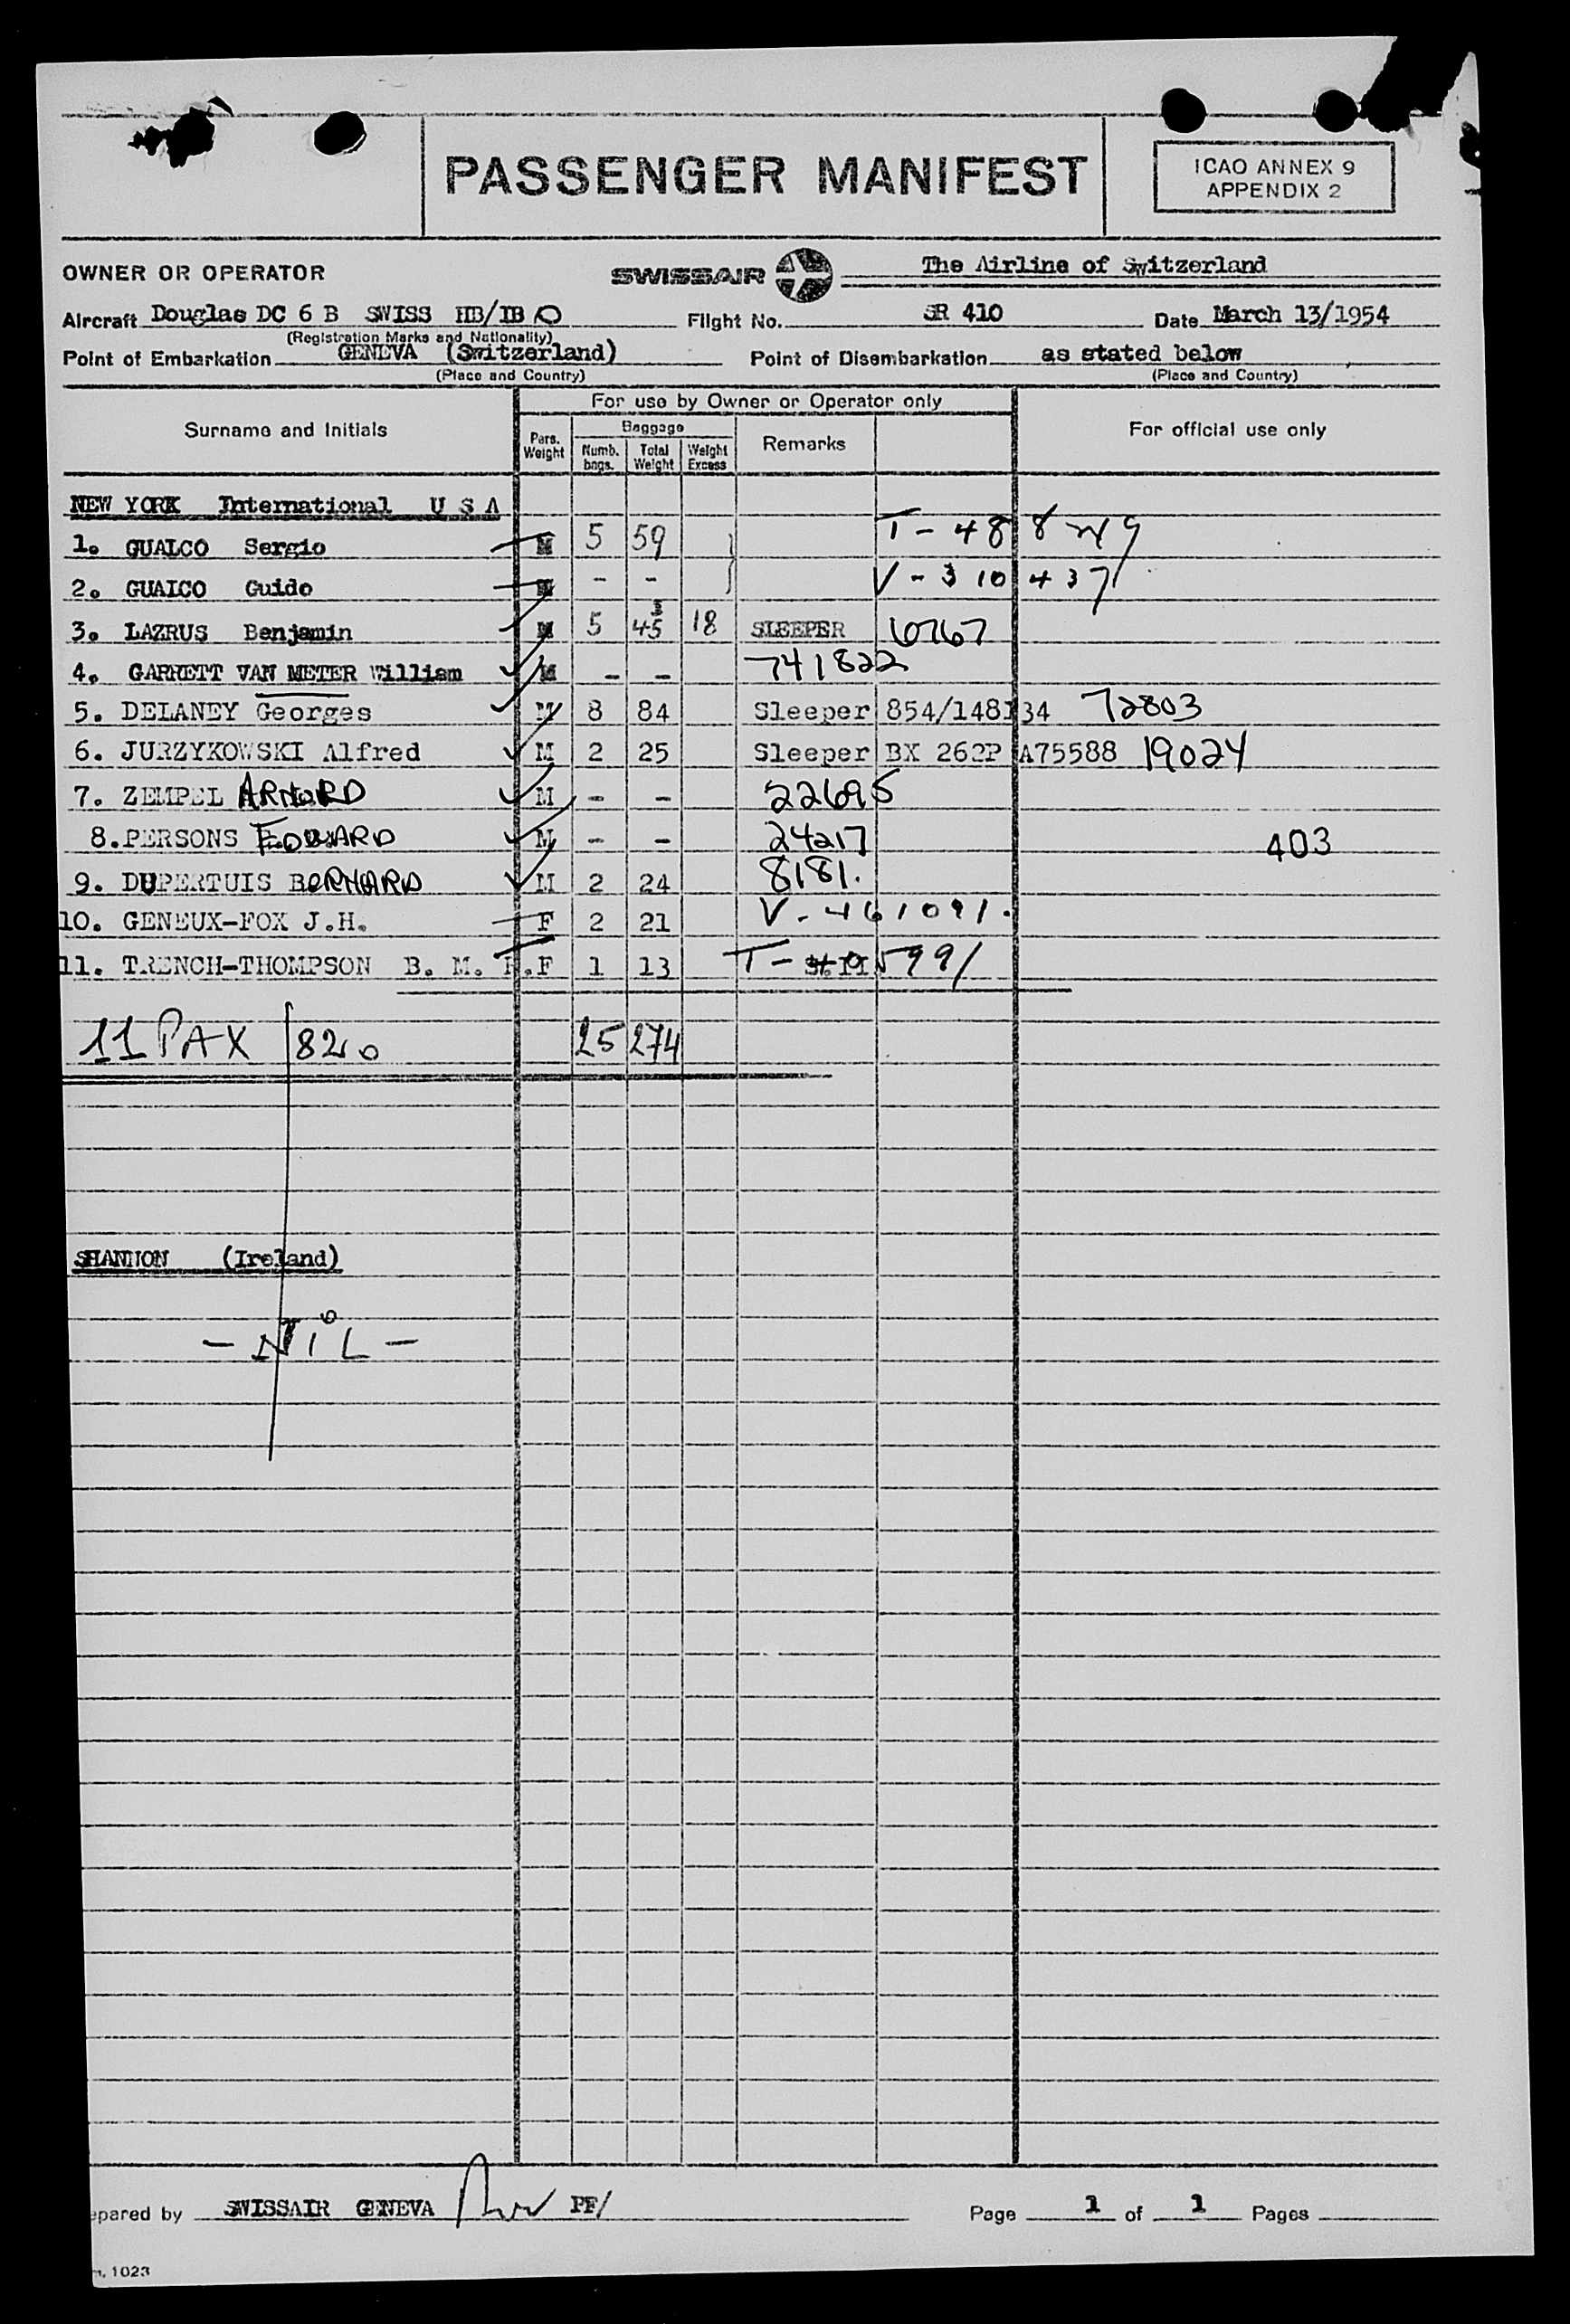 PASSENGER MANIFEST
ICAO ANNEX 9
APPENDIX 2
OWNER OR OPERATOR SWISSAIR The Airline of Switzerland
Aircraft Douglas DC 6 B SWISS HB/IB O Flight No. SR 410 Date March 13/1954
(Registration Marks and Nationality)
Point of Embarkation GENEVA (Switzerland) Point of Disembarkation as stated below
(Place and Country) (Place and Country)
For use by Owner or Operator only
Surname and Initials Pers. Weight Baggage Numb. bags. Total Weight Weight Excess Remarks For official use only
NEW YORK International U S A
1. GUALCO Sergio M 5 59 T-488
2. GUALCO Guido M - - V-310437
3. LAZRUS Benjamin M 5 45 18 SLEEPER 6767
4. GARRETT VAN METER William M - - 741822
5. DELANEY Georges M 8 84 Sleeper 854/148134 72803
6. JURZYKOWSKI Alfred M 2 25 Sleeper BX 262P A75588 19024
7. ZEMPEL ARNORD M - - 22695
8. PERSONS EDWARD M - - 24217 403
9. DUPERTUIS BERNARD M 2 24 8181.
10. GENEUX-FOX J.H. F 2 21 V-461091.
11. TRENCH-THOMPSON B. M. F 1 13 T- 5991
11 PAX 820 25 274
SHANNON (Ireland)
- NIL -
epared by SWISSAIR GENEVA PF/ Page 1 of 1 Pages
1023